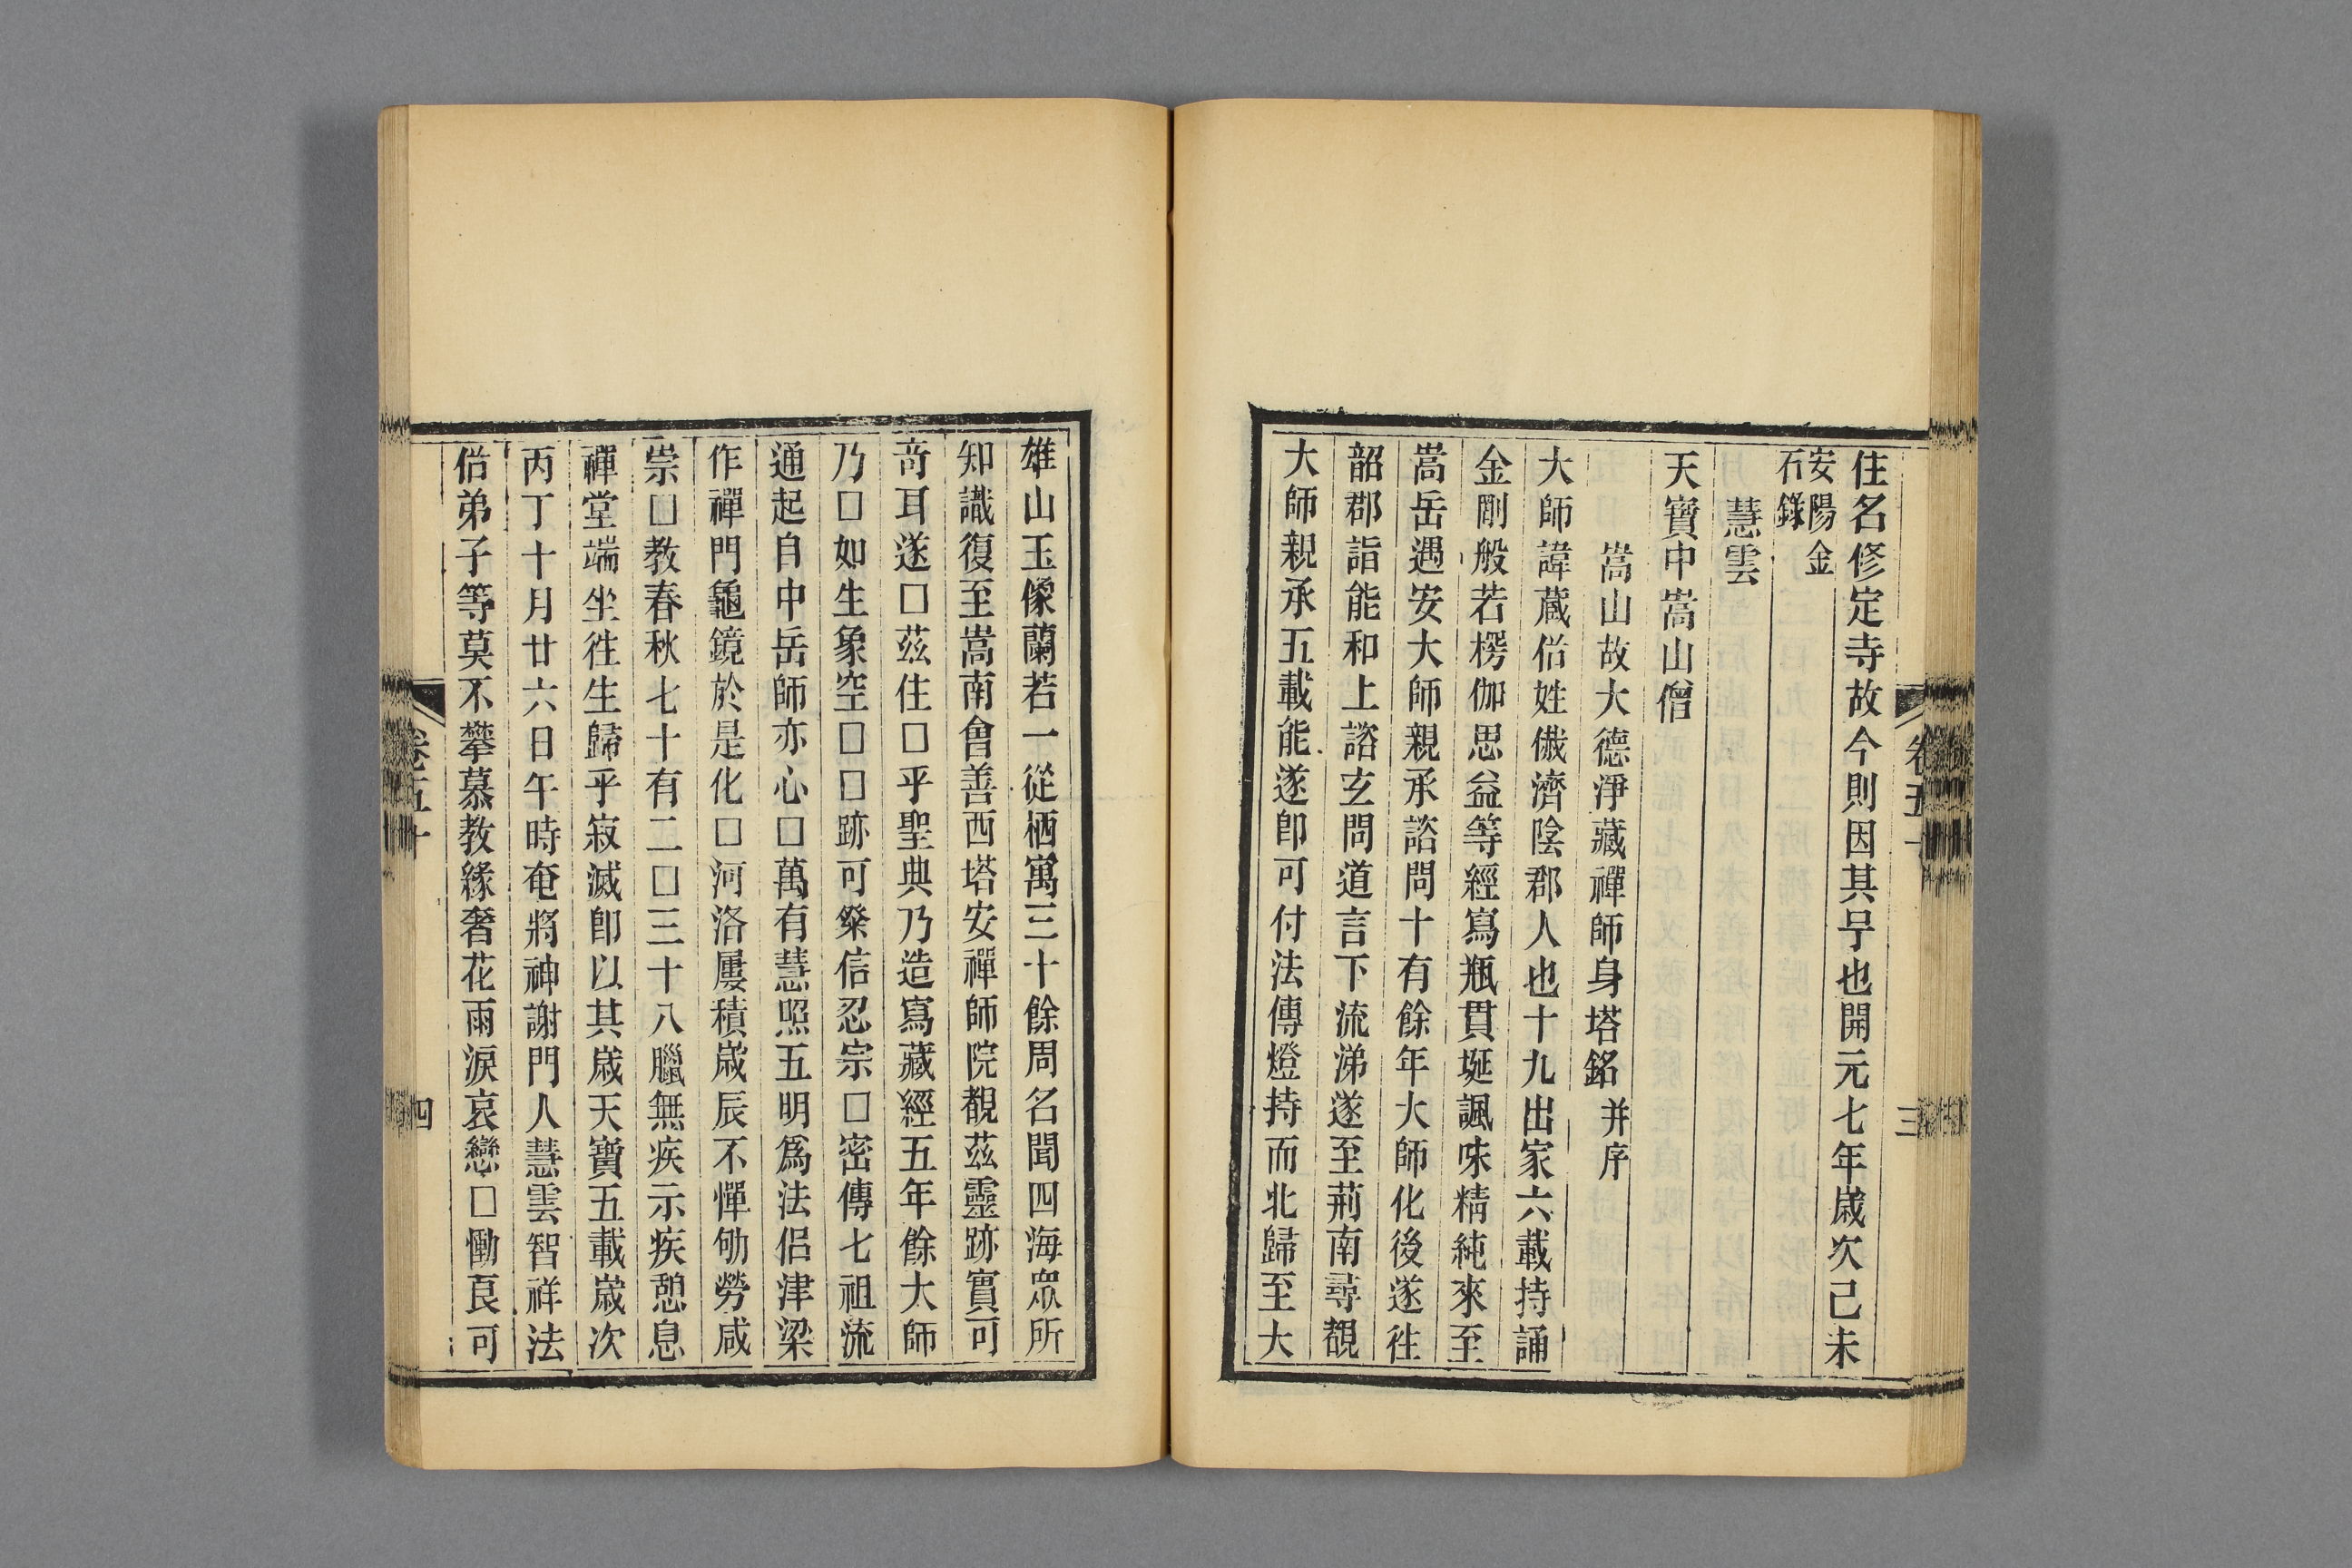 住名修定寺故今則因其号也開元七年歲次己未
安陽金
石錄
慧雲
天寶中嵩山僧
嵩山故大德淨藏禪師身塔銘 并序
大師諱蔵俗姓㒒濟陰郡人也十九出家六載持誦
金剛般若楞伽思益等經寫瓶貫埏諷味精純來至
嵩岳遇安大師親承諮問十有餘年大師化後遂往
韶郡詣能和上諮玄問道言下流涕遂至荊南尋覩
大師親承五載能遂卽可付法傳燈持而北歸至大
卷五十
三
雄山玉像蘭若一從栖寓三十餘周名聞四海眾所
知識復至嵩南會善西塔安禪師院覩茲靈跡實可
奇耳遂□茲住□乎聖典乃造寫藏經五年餘大師
乃□如生象空□□跡可粲信忍宗□密傳七祖流
通起自中岳師亦心□萬有慧照五明爲法侶津梁
作禪門龜鏡於是化□河洛屢積歲辰不憚劬勞咸
崇□教春秋七十有二□三十八臘無疾示疾憩息
禪堂端坐徃生歸乎寂滅卽以其歲天寶五載歲次
丙丁十月廿六日午時奄將神謝門人慧雲智祥法
俗弟子等莫不攀慕教緣奢花雨淚哀戀□慟良可
卷五十
四